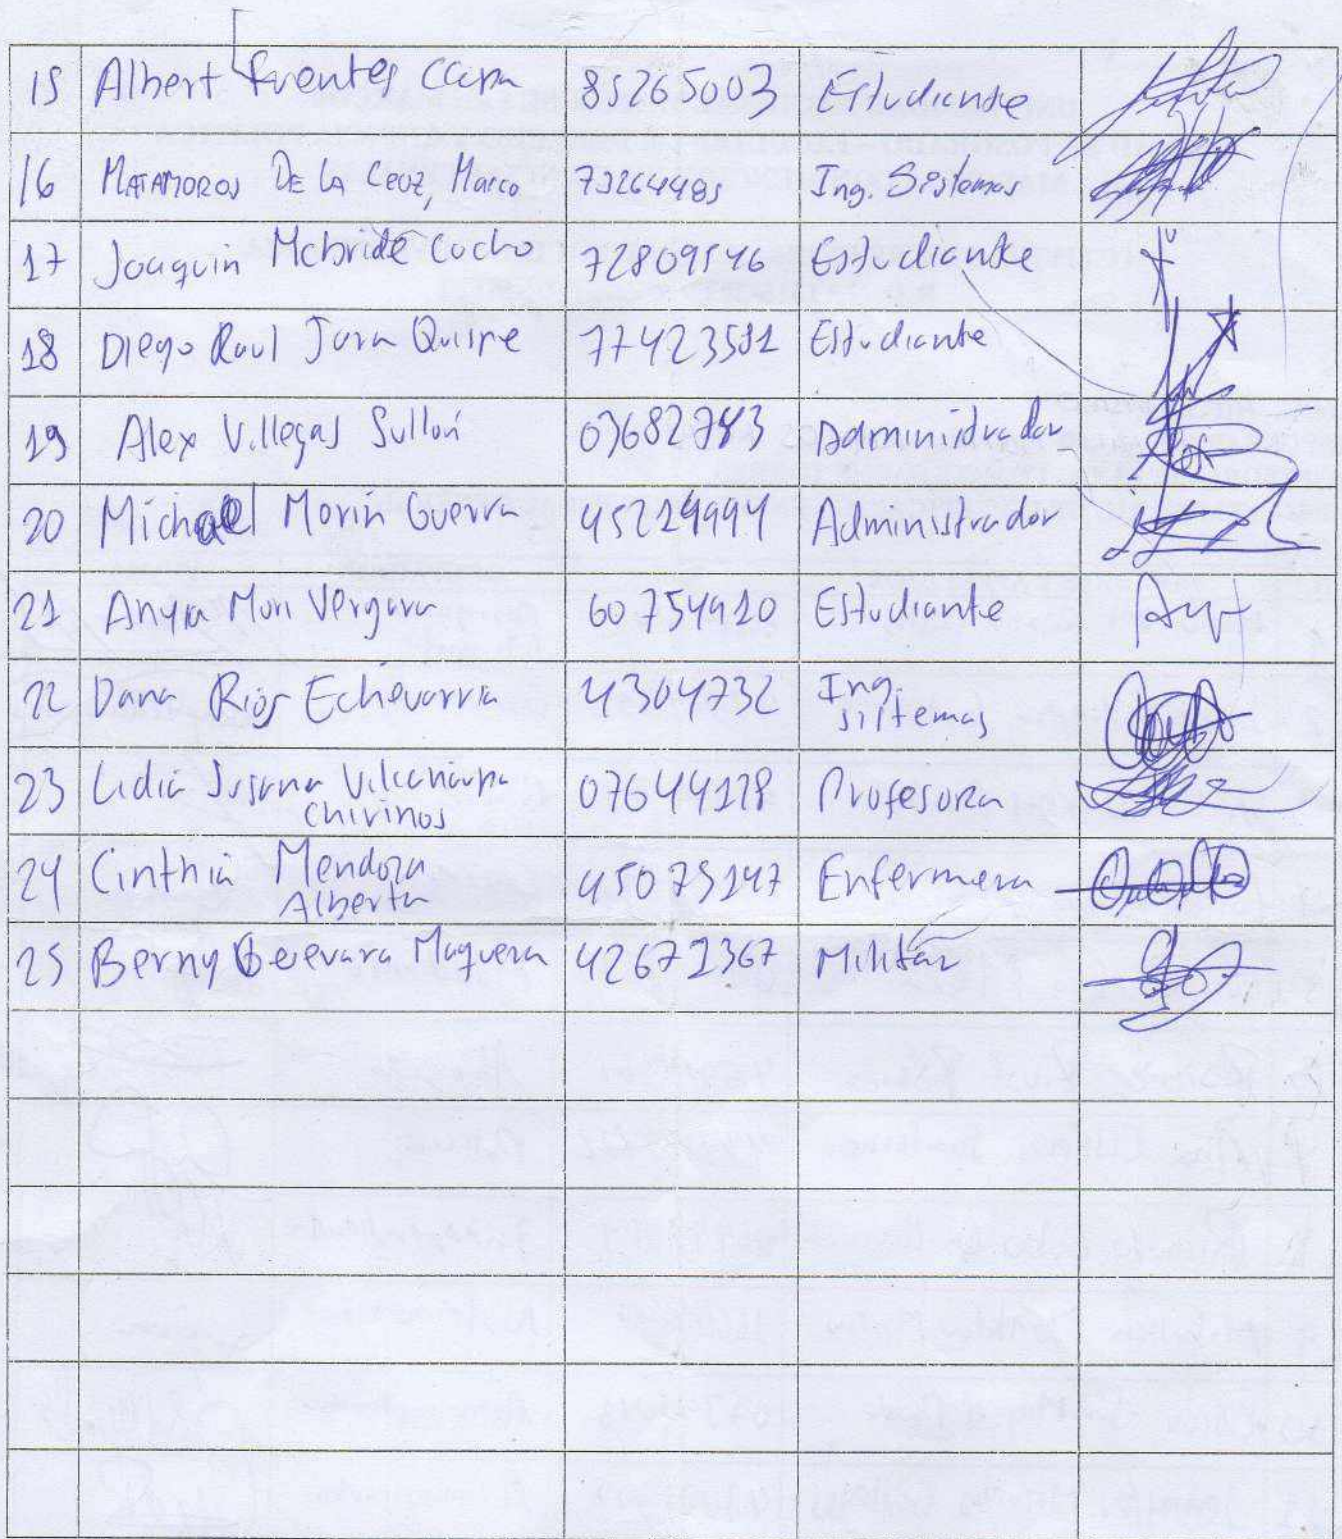 15 Albert Fuentes Ccapa 85265003 Estudiante
16 MATAMOROS DE LA CRUZ, Marco 73264485 Ing. Sistemas
17 Joaquin Mcbride Cucho 72809546 Estudiante
18 Diego Raul Jara Quispe 77423581 Estudiante
19 Alex Villegas Sullón 03682743 Administrador
20 Michael Morin Guerra 45219994 Administrador
21 Anyra Mori Vergara 60754910 Estudiante
22 Dana Rios Echevarria 4304732 Ing.
sistemas
23 Lidia Susana Vilcanaupa 07644178 Profesora
Chirinos
24 Cinthia Mendoza 45075147 Enfermera
Alberta
25 Berny Guevara Maquera 42671367 Militar